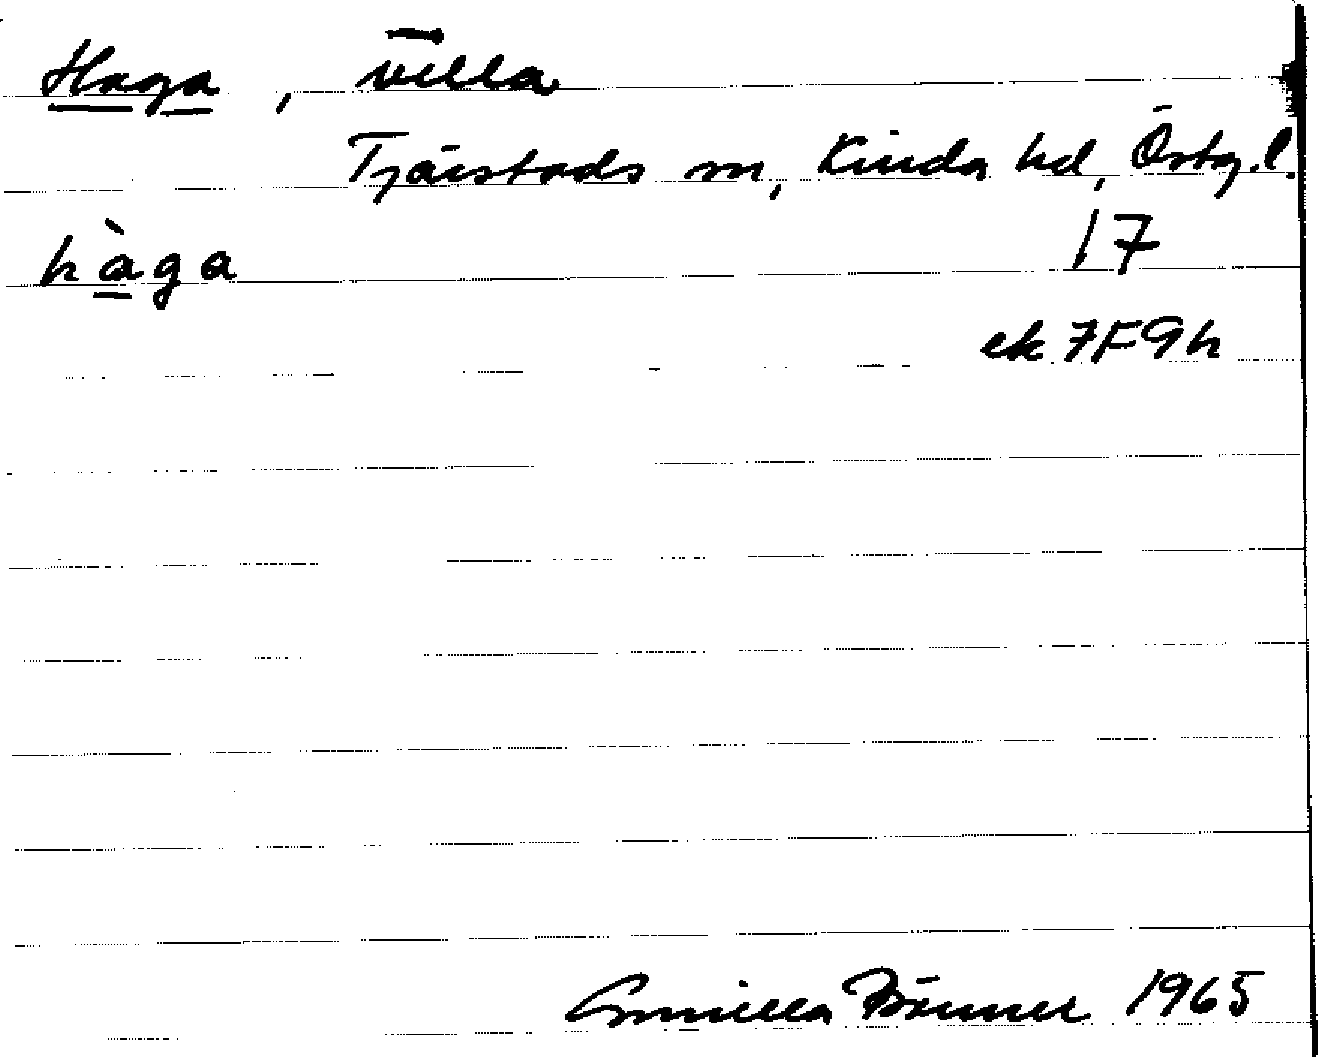 Haga, villa
Tjärstads sn, Kinda hd, Östg. l.
hàga 17
ek 7F9h
Gunilla 1965